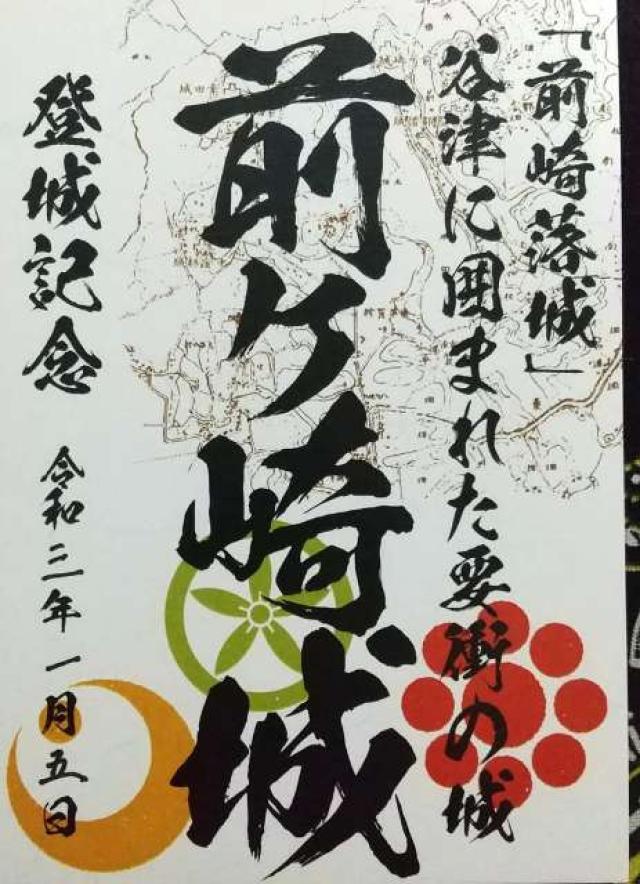 「前崎落城」
谷津に囲まれた要衝の城
前ケ崎城
登城記念
令和三年一月五日